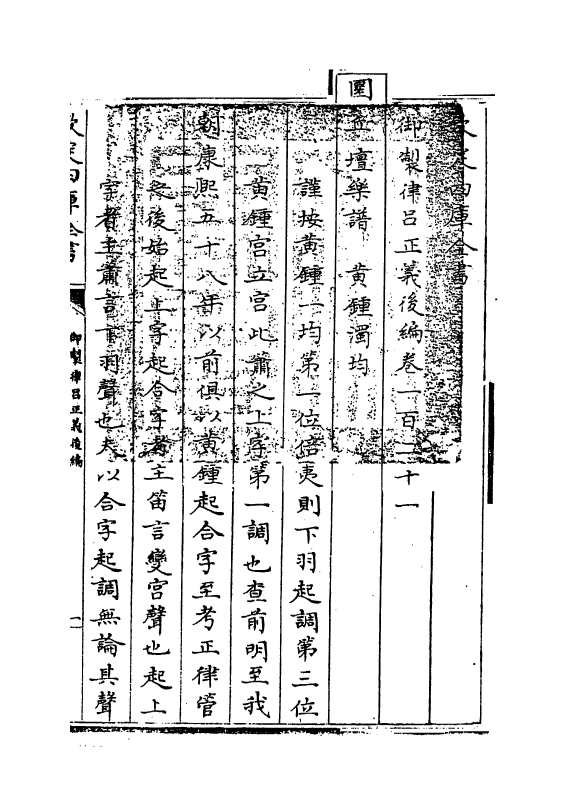 欽定四庫全書
御製律呂正義後編卷一百二十一
壇樂譜 黃鍾濁均
謹按黃鍾一均第一位倍夷則下羽起調第三位
黃鍾宮立宮此簫之上字第一調也查前明至我
朝康熙五十八年以前俱以黃鍾起合字至考正律管
之後始起上字起合字者主笛言變宮聲也起上
字者主簫言下羽聲也夫以合字起調無論其聲
欽定四庫全書
御製律呂正義後編
一